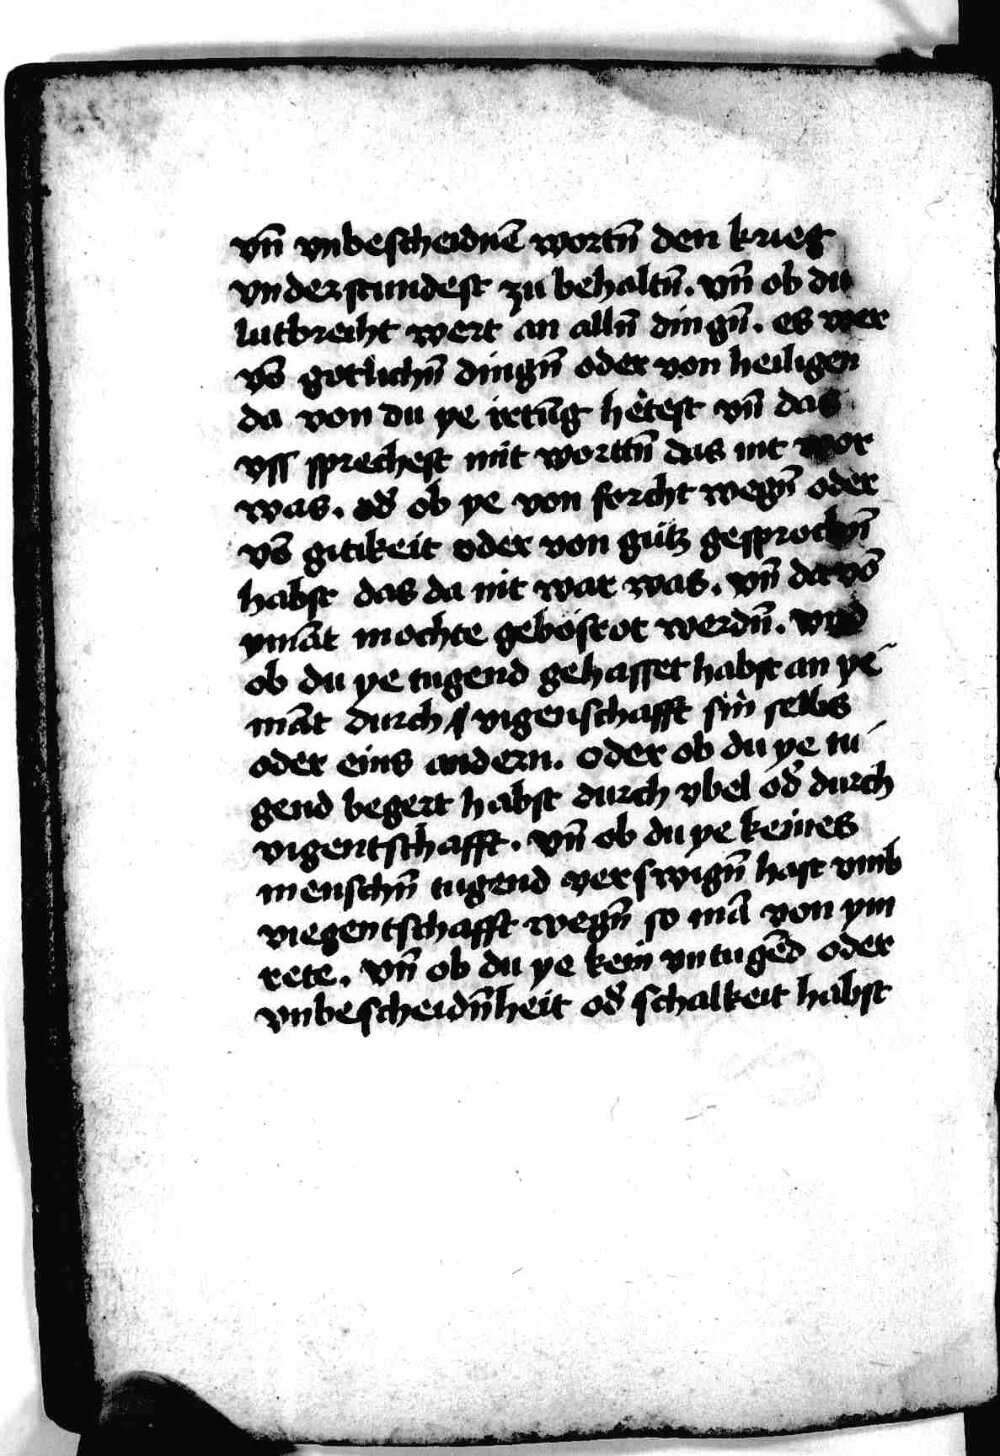 vn̄ vnbescheidnē wortn̄ den krieg
vnderstundest zu behaltn̄. vn̄ ob du
lutbrecht wert an alln̄ dingn̄. es wer
vō gotlichn̄ dingn̄ oder von heiligen
da von du ye irtūg hetest vn̄ das
vss sprechest mit worttn̄ das nit wor
was. od̄ ob ye von forcht wegn̄ oder
vō gitikeit oder von gütz gesprochn̄
habst das da nit war was. vn̄ da vō
ymāt mochte gebösrot werdn̄. vnd
ob du ye tugend gehasset habst an ye
māt durch vigenschafft sin selbs
oder eins andern. Oder ob du ye tu
gend begert habst durch vbel od̄ durch
vigentschafft. vn̄ ob du ye keines
menschn̄ tugend verswign̄ hast vmb
viegentschafft wegn̄ so mā von ym
rete. vn̄ ob du ye kein vntugēd oder
vnbescheidn̄heit od̄ schalkeit habst